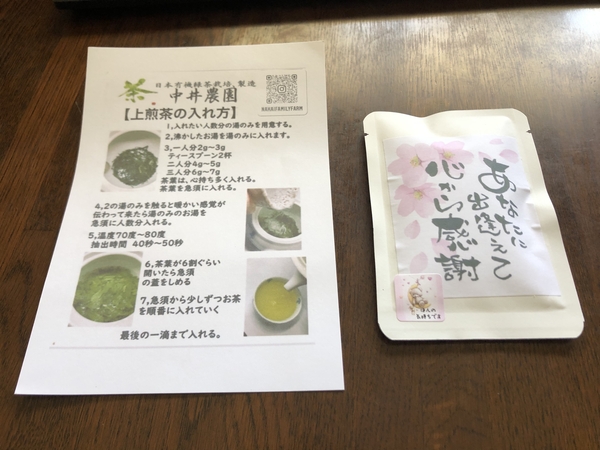 茶
日本有機緑茶栽培、製造
中井農園
NAKAIFAMILYFARM
【上煎茶の入れ方】
1,入れたい人数分の湯のみを用意する。
2,沸かしたお湯を湯のみに入れます。
3,一人分2g〜3g
ティースプーン2杯
二人分4g〜5g
三人分6g〜7g
茶葉は、心持ち多く入れる。
茶葉を急須に入れる。
4,2の湯のみを触ると暖かい感覚が
伝わって来たら湯のみのお湯を
急須に人数分入れる。
5,温度70度〜80度
抽出時間 40秒〜50秒
6,茶葉が6割ぐらい
開いたら急須
の蓋をしめる
7,急須から少しずつお茶
を順番に入れていく
最後の一滴まで入れる。
あなたに
出逢えて
心から感謝
ほんの
気持ちです